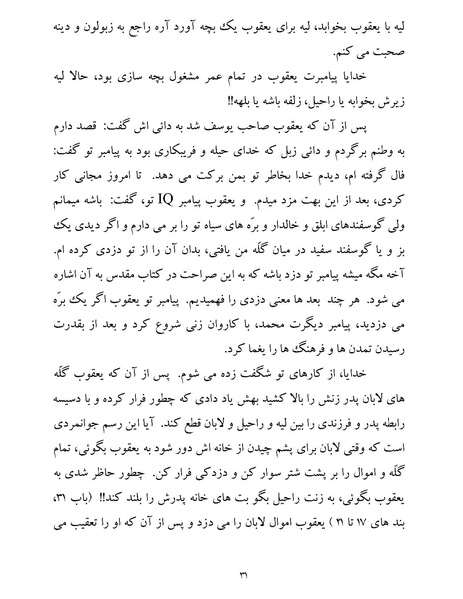 لیه با یعقوب بخوابد، لیه برای یعقوب یک بچه آورد آره راجع به زبولون و دینه
صحبت می کنم.
خدایا پیامبرت یعقوب در تمام عمر مشغول بچه سازی بود، حالا لیه
زیرش بخوابه یا راحیل، زلفه باشه یا بلهه!!
پس از آن که یعقوب صاحب یوسف شد به دائی اش گفت: قصد دارم
به وطنم برگردم و دائی زبل که خدای حیله و فریبکاری بود به پیامبر تو گفت:
فال گرفته ام، دیدم خدا بخاطر تو بمن برکت می دهد. تا امروز مجانی کار
کردی، بعد از این بهت مزد میدم. و یعقوب پیامبر IQ تو، گفت: باشه میمانم
ولی گوسفندهای ابلق و خالدار و برّه های سیاه تو را بر می دارم و اگر دیدی یک
بز و یا گوسفند سفید در میان گلّه من یافتی، بدان آن را از تو دزدی کرده ام.
آخه مگه میشه پیامبر تو دزد باشه که به این صراحت در کتاب مقدس به آن اشاره
می شود. هر چند بعد ها معنی دزدی را فهمیدیم. پیامبر تو یعقوب اگر یک برّه
می دزدید، پیامبر دیگرت محمد، با کاروان زنی شروع کرد و بعد از بقدرت
رسیدن تمدن ها و فرهنگ ها را یغما کرد.
خدایا، از کارهای تو شگفت زده می شوم. پس از آن که یعقوب گلّه
های لابان پدر زنش را بالا کشید بهش یاد دادی که چطور فرار کرده و با دسیسه
رابطه پدر و فرزندی را بین لیه و راحیل و لابان قطع کند. آیا این رسم جوانمردی
است که وقتی لابان برای پشم چیدن از خانه اش دور شود به یعقوب بگوئی، تمام
گلّه و اموال را بر پشت شتر سوار کن و دزدکی فرار کن. چطور حاظر شدی به
یعقوب بگوئی، به زنت راحیل بگو بت های خانه پدرش را بلند کند!! (باب ۳۱،
بند های ۱۷ تا ۲۱ ) یعقوب اموال لابان را می دزد و پس از آن که او را تعقیب می
۳۱